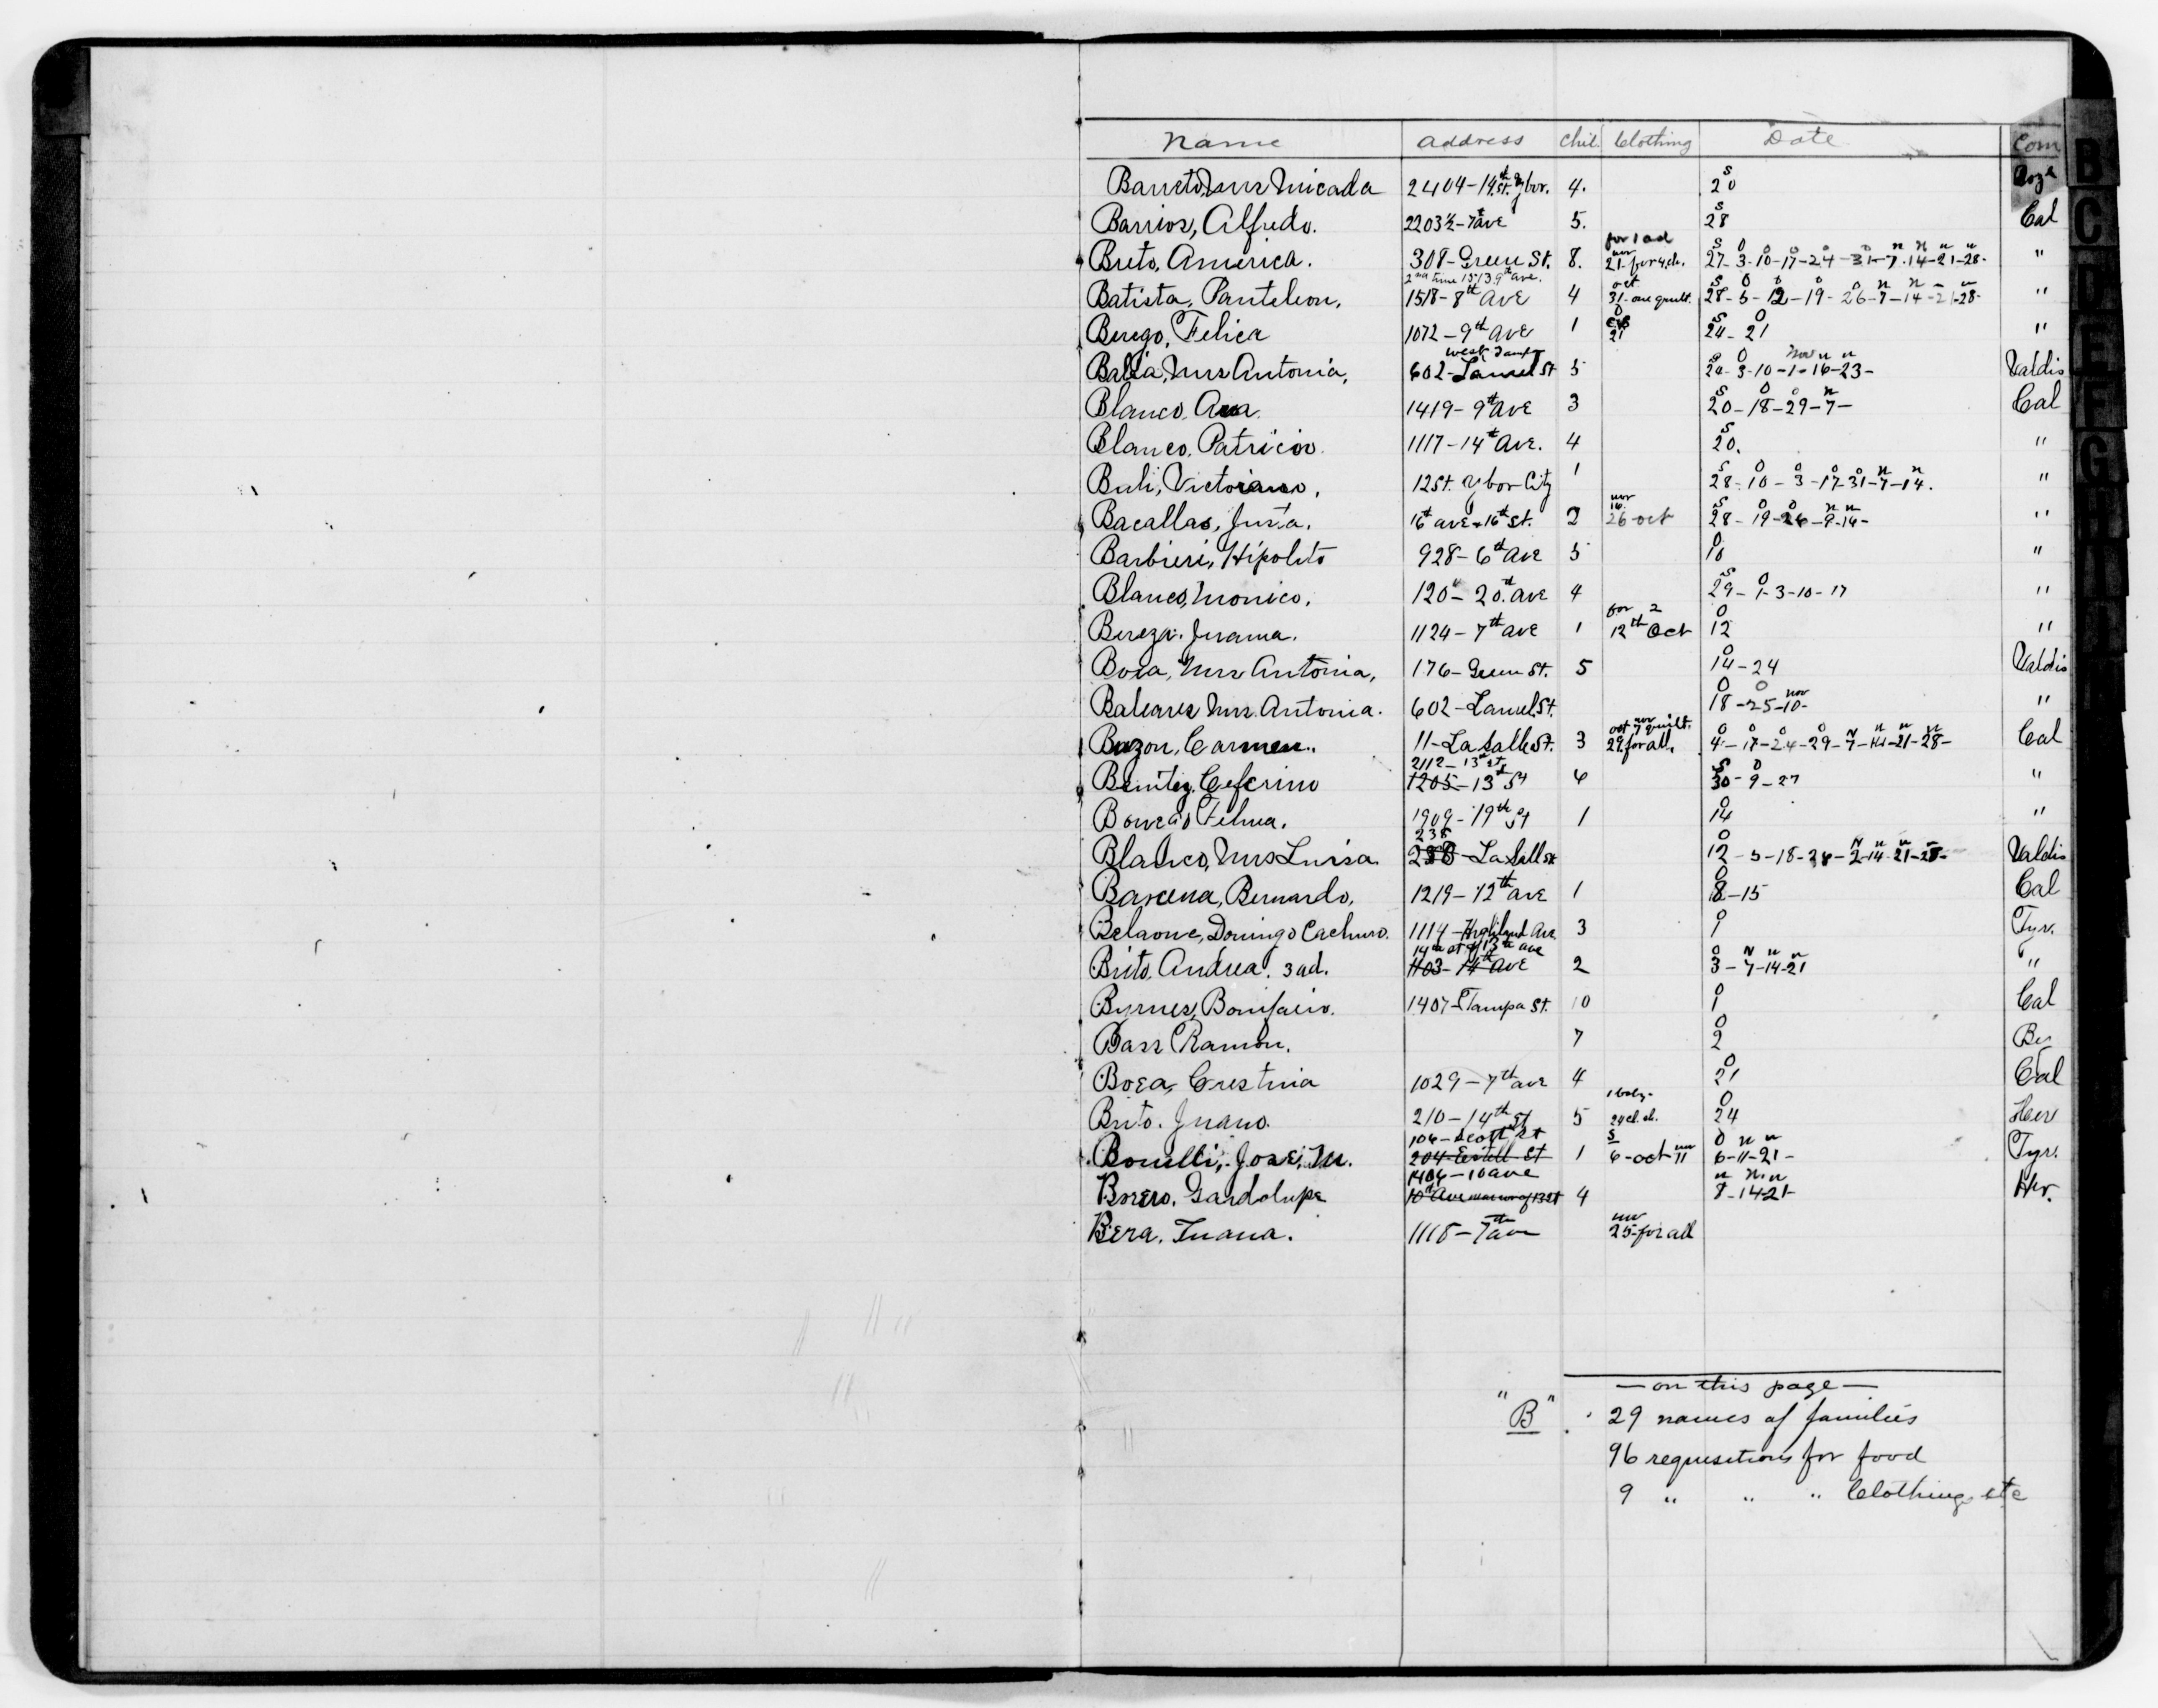 Name Address Chil. Clothing Date Com
Barreto, Mrs Micada 2404-14th St. Ybor. 4. S 20
Barrios, Alfredo. 2203½-7th Ave 5. S 28 Cal
Breto, America. 308-Green St. 8. for 1 ad nov 21-for 4 ch. S 27-O 3-O 10-O 17-O 24-O 31-N 7-N 14-N 21-N 28- "
2nd time 1513 9th ave.
Batista, Panteleon, 1518-8th Ave 4 oct 31-one quilt. S 28-O 5-O 12-O 19-O 26-N 7-N 14-21-28- "
Berego, Felica 1072-9th Ave 1 O 21 S 24-O 21 "
Balia, Mrs Antonia, 602-Laurel St West Tampa 5 S 20-O 3-10-Nov 1-N 16-N 23- Valdis
Blanco, Ana. 1419-9th Ave 3 S 20-O 18-O 29-N 7- Cal
Blanco, Patricio. 1117-14th Ave. 4 S 20. "
Buli, Victoriano, 12 St. Ybor City 1 S 28-O 10-O 3-O 17-O 31-N 7-N 14. "
Bacallao, Justa. 16th ave & 16th St. 2 nov 16 26-oct S 28-O 19-O 26-N 9-N 16- "
Barbieri, Hipolito 928-6th Ave 5 O 10 "
Blanco, Monico. 120-20th Ave 4 S 29-O 1-3-10-17 "
Bereza. Juana. 1124-7th Ave 1 for 2 12th Oct O 12 "
Bova, Mrs Antonia, 176-Green St. 5 O 14-24 Valdis
Baleares Mrs. Antonia. 602-Laurel St. O 18-O 25-nov 10- "
Buzon, Carmen. 11-La Salle St. 3 nov 7 quilt. oct 29 for all, O 4-O 17-O 24-O 29-N 7-N 14-N 21-N 28- Cal
2112-13th St,
Benitez, Ceferino 1205-13th St 6 S 30-O 9-27 "
Bouzas Felma. 1909-19th St 1 O 14 "
238
Blanco, Mrs Luisa. La Salle St O 12-5-18-28-N 2-N 14-N 21-28- Valdis
Barcena, Bernardo, 1219-12th Ave 1 O 8-15 Cal
Belaone, Domingo Cachuro. 1114-Highland Ave 3 O 1 Tyr.
14th st & 13th ave
Brito, Andrea. 3 ad. 1103-14th Ave 2 O 3-N 7-N 14-N 21 "
Byrnes, Bonifacio. 1407-Tampa St. 10 O 1 Cal
Bass Ramon. 7 O 2 Be
Boza, Crestina 1029-7th ave 4 O 21 Cal
Brito. Juano. 210-14th St 5 1 baby- 24 cl. ch. O 24 Her
106-Scott St
Bonelli, Jose, M. 204-Estell St 1 S 6-oct nov 11 O 6-N 11-N 21- Tyr.
1406-10 ave
Borero. Gardolupe 10th Ave near cor of 13 St 4 N 8-N 14-N 21- Her.
Bera. Juana. 1118-7th ave nov 25-for all
— on this page —
"B" 29 names of families
96 requisitions for food
9 " " " Clothing etc
B
C
D
E
F
G
H